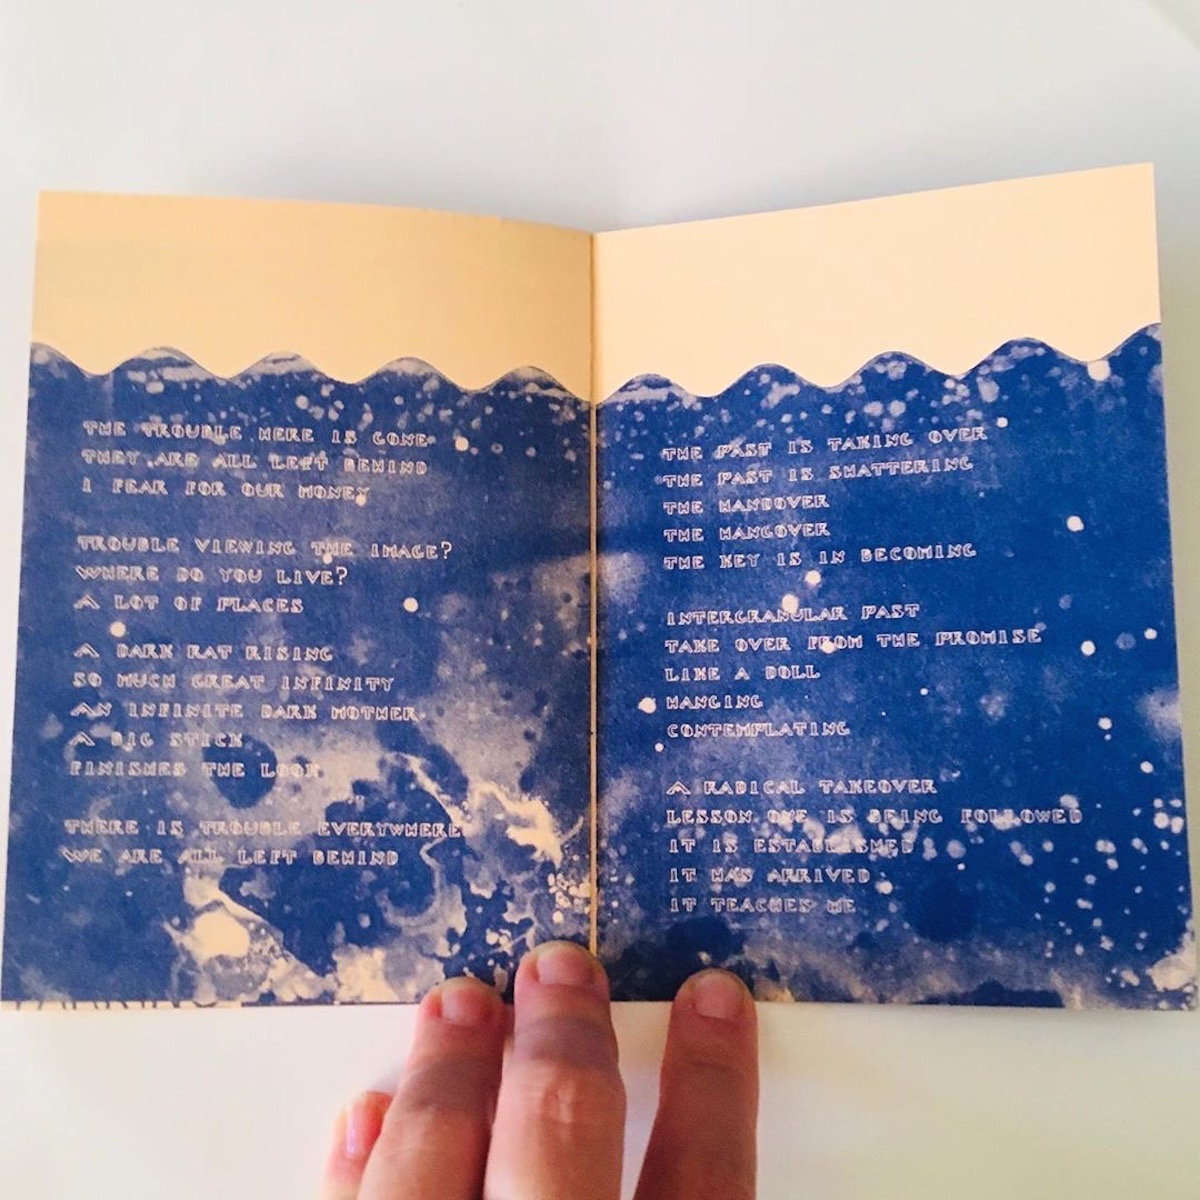 THE TROUBLE HERE IS GONE
THEY ARE ALL LEFT BEHIND
I FEAR FOR OUR MONEY
TROUBLE VIEWING THE IMAGE?
WHERE DO YOU LIVE?
A LOT OF PLACES
A DARK RAT RISING
SO MUCH GREAT INFINITY
AN INFINITE DARK MOTHER
A BIG STICK
FINISHES THE LOOK
THERE IS TROUBLE EVERYWHERE
WE ARE ALL LEFT BEHIND
THE PAST IS TAKING OVER
THE PAST IS SHATTERING
THE HANDOVER
THE HANGOVER
THE KEY IS IN BECOMING
INTERGRANULAR PAST
TAKE OVER FROM THE PROMISE
LIKE A DOLL
HANGING
CONTEMPLATING
A RADICAL TAKEOVER
LESSON ONE IS BEING FOLLOWED
IT IS ESTABLISHED
IT HAS ARRIVED
IT TEACHES ME